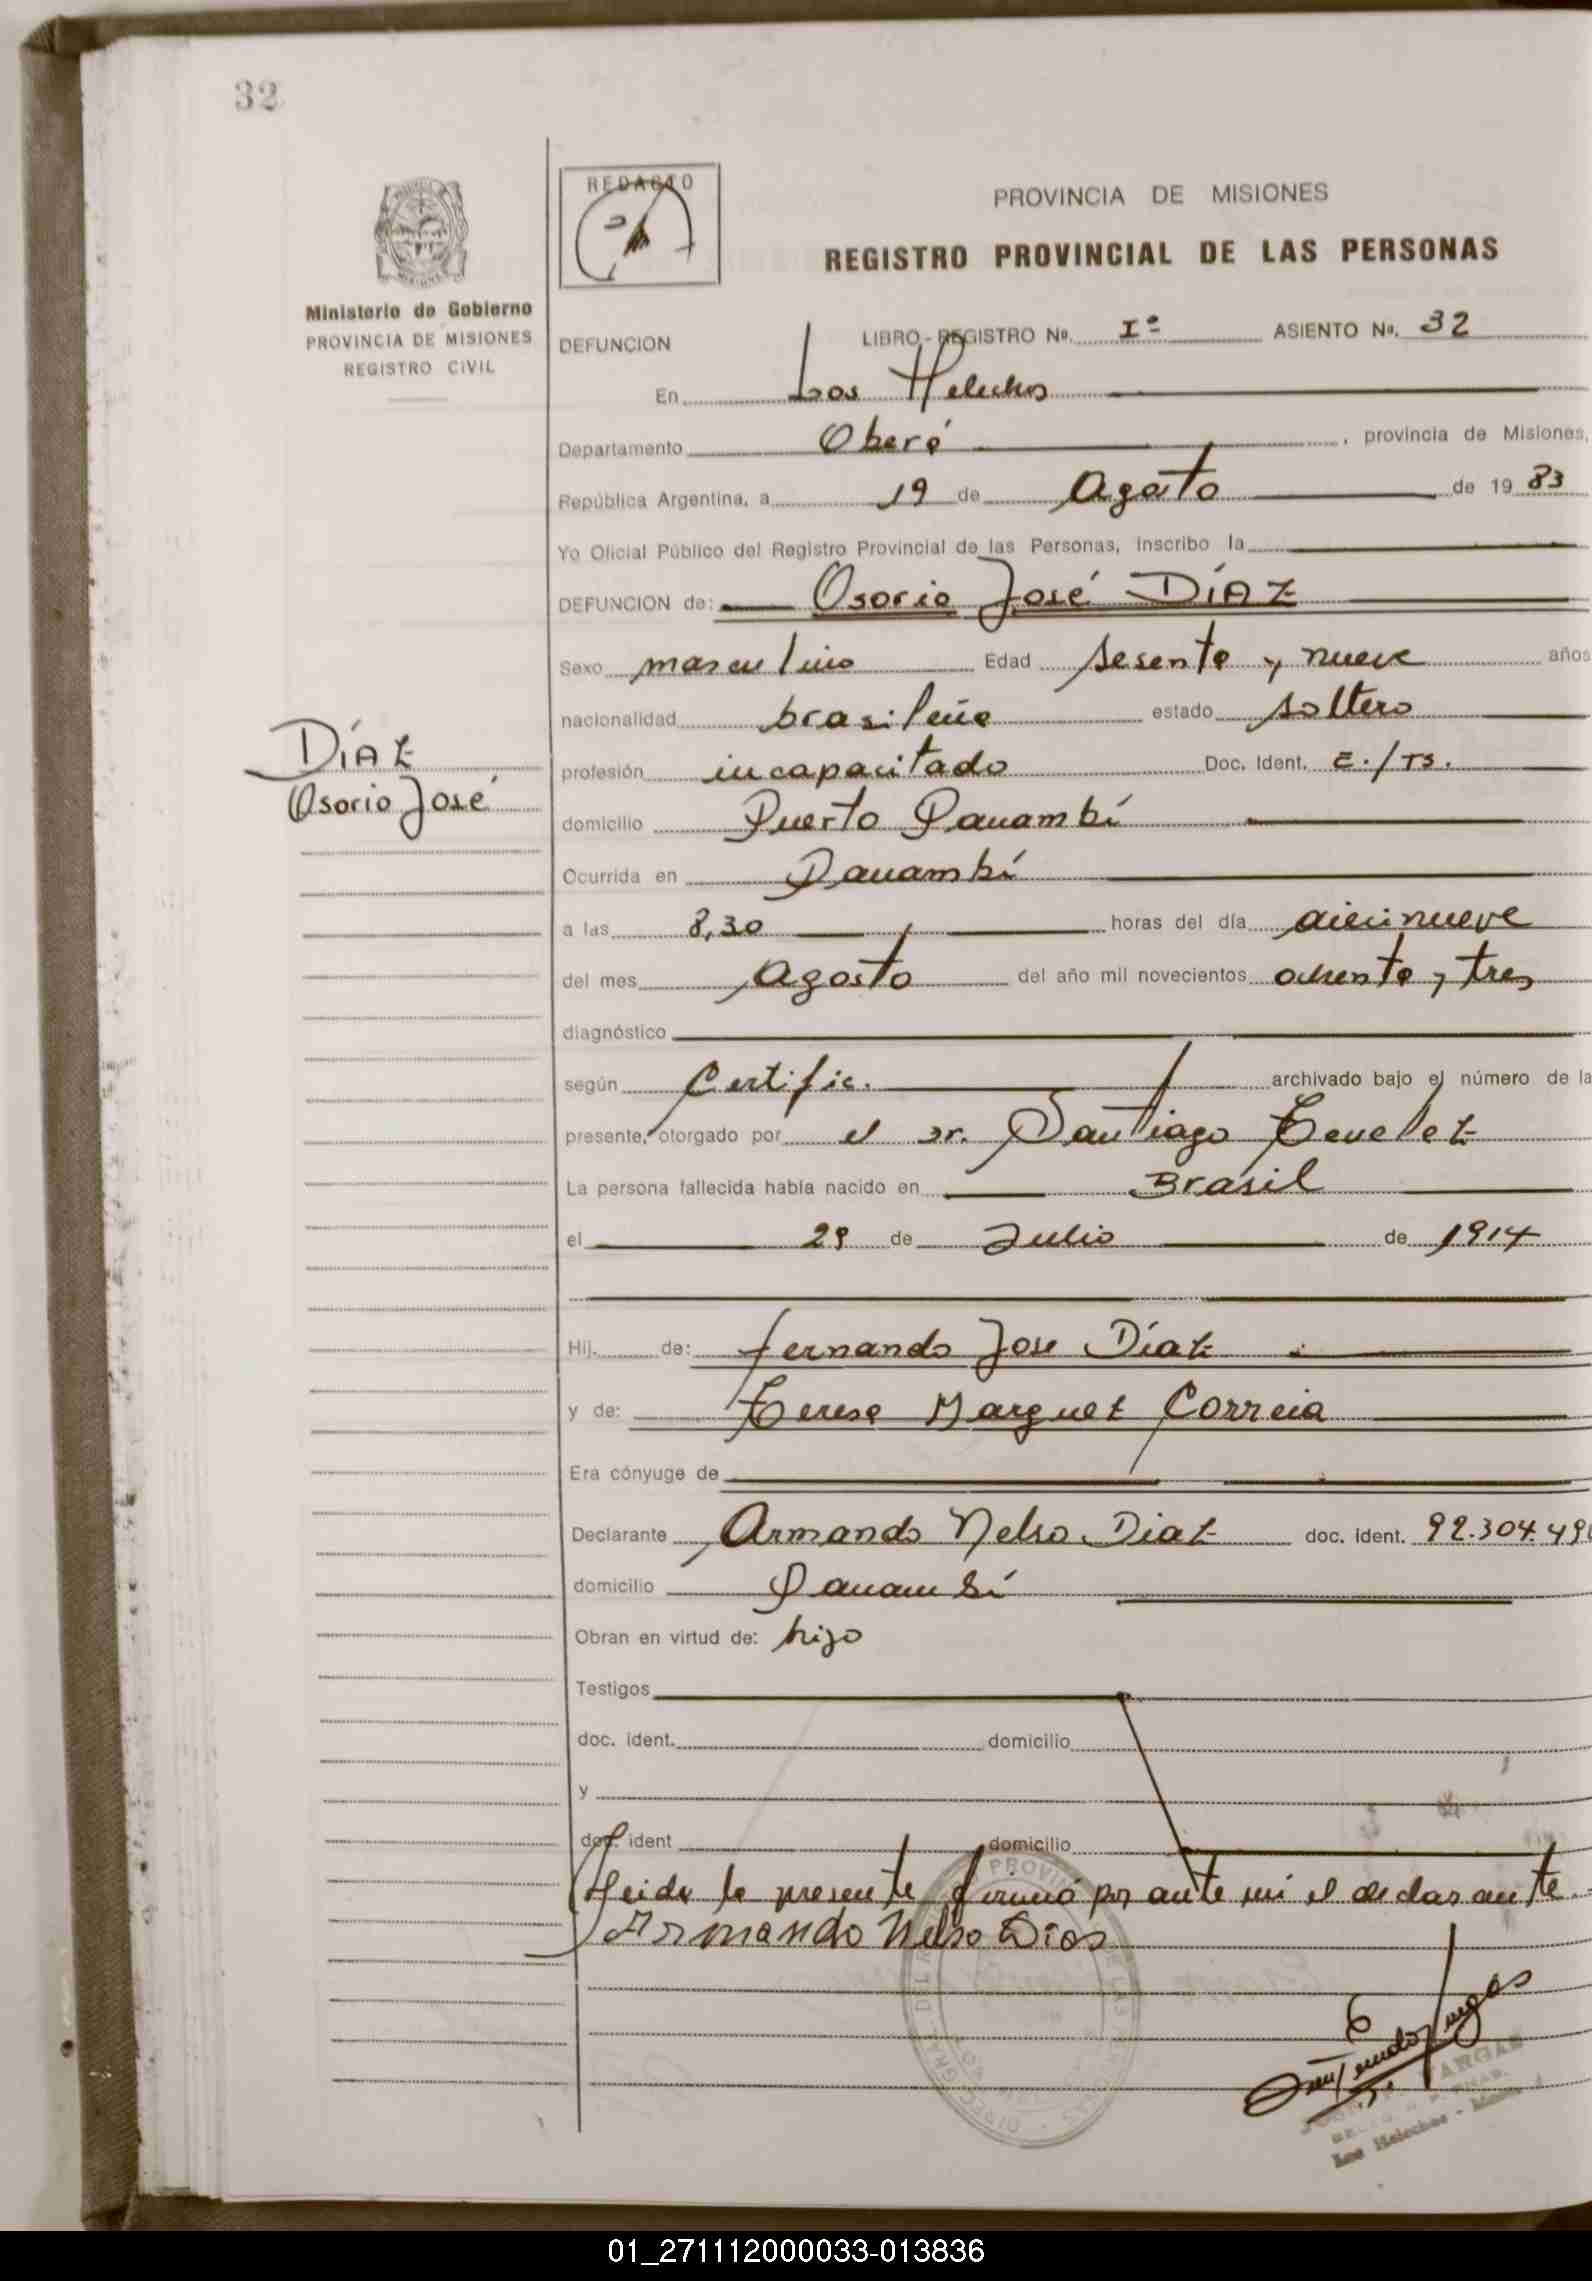 32
REDACTO
PROVINCIA DE MISIONES
REGISTRO PROVINCIAL DE LAS PERSONAS
Ministerio de Gobierno
PROVINCIA DE MISIONES
REGISTRO CIVIL
DEFUNCION LIBRO-REGISTRO Nº. Iº ASIENTO Nº. 32
En Los Helechos
Departamento Oberá, provincia de Misiones,
República Argentina, a 19 de Agosto de 1983
Yo Oficial Público del Registro Provincial de las Personas, inscribo la
DEFUNCION de: Osorio José DÍAZ
Sexo masculino Edad sesenta y nueve años
nacionalidad brasileña estado soltero
DÍAZ
Osorio José
profesión incapacitado Doc. Ident. E./TS.
domicilio Puerto Panambí
Ocurrida en Panambí
a las 8,30 horas del día diecinueve
del mes Agosto del año mil novecientos ochenta y tres
diagnóstico
según Certific. archivado bajo el número de la
presente, otorgado por el sr. Santiago
La persona fallecida había nacido en Brasil
el 29 de Julio de 1914
Hij. de: Fernando Jose Díaz
y de: Teresa Marquez Correia
Era cónyuge de
Declarante Armando Nelso Diaz doc. ident. 92.304.49
domicilio Panambí
Obran en virtud de: hijo
Testigos
doc. ident. domicilio
y
doc. ident domicilio
Leida la presente firmó por ante mi el declarante.
Armando Nelso Dios
Los Helechos -
01_271112000033-013836